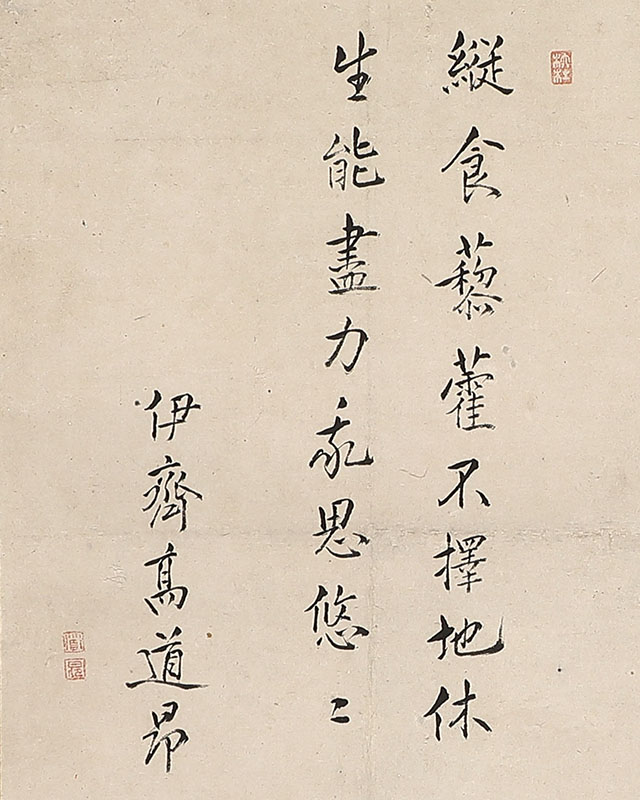 縦食藜藿不擇地休
生能盡力我思悠〻
伊齊高道昂